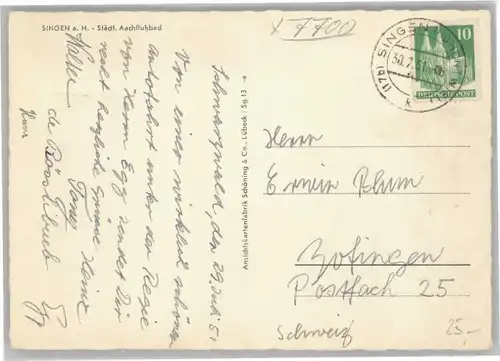 SINGEN a. H. - Städt. Aachflußbad
x 7700
SINGEN
(17b)
30.7.51
10
DEUTSCHE POST
Schwarzwald, den 29. Juli 51
Von einer wirklich schönen
Autofahrt unter der Regie
von Herrn Egg sendet Dir
recht herzliche Grüsse Heinz
Walter
Ansichtskartenfabrik Schöning & Co., Lübeck / Sg 13
Herrn
Erwin Blum
Zofingen
Postfach 25
Schweiz
25,-